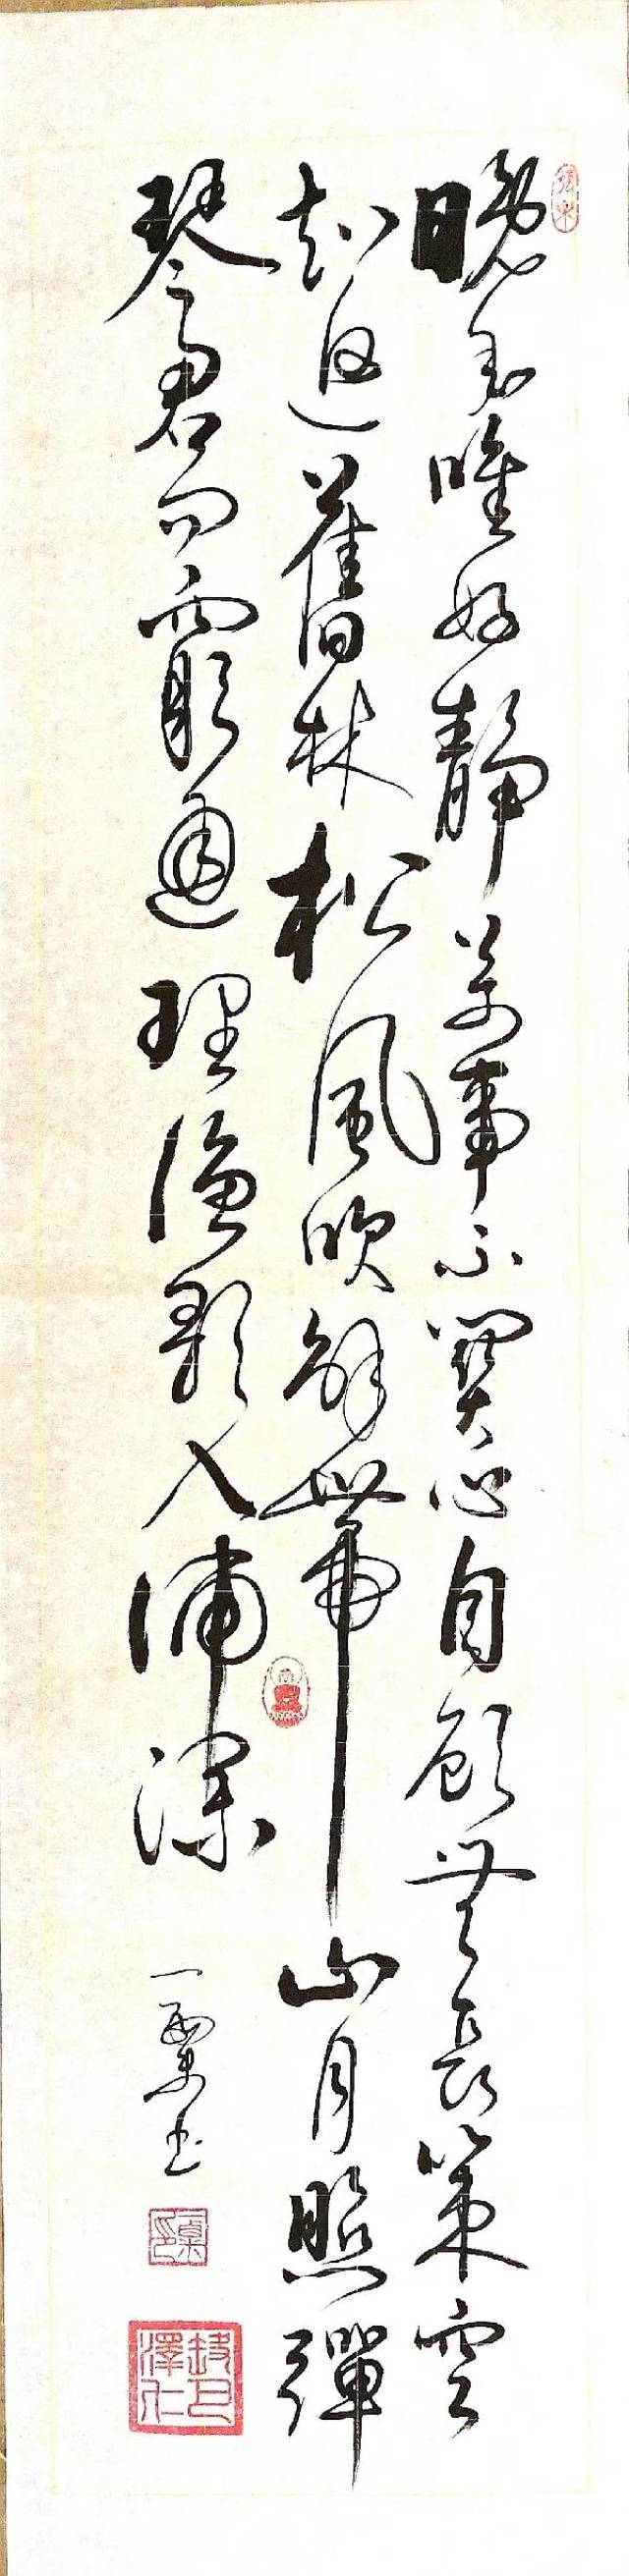 晚年唯好靜萬事不關心自顧無長策空
知返舊林松風吹解帶山月照彈
琴君問窮通理漁歌入浦深 一粟书